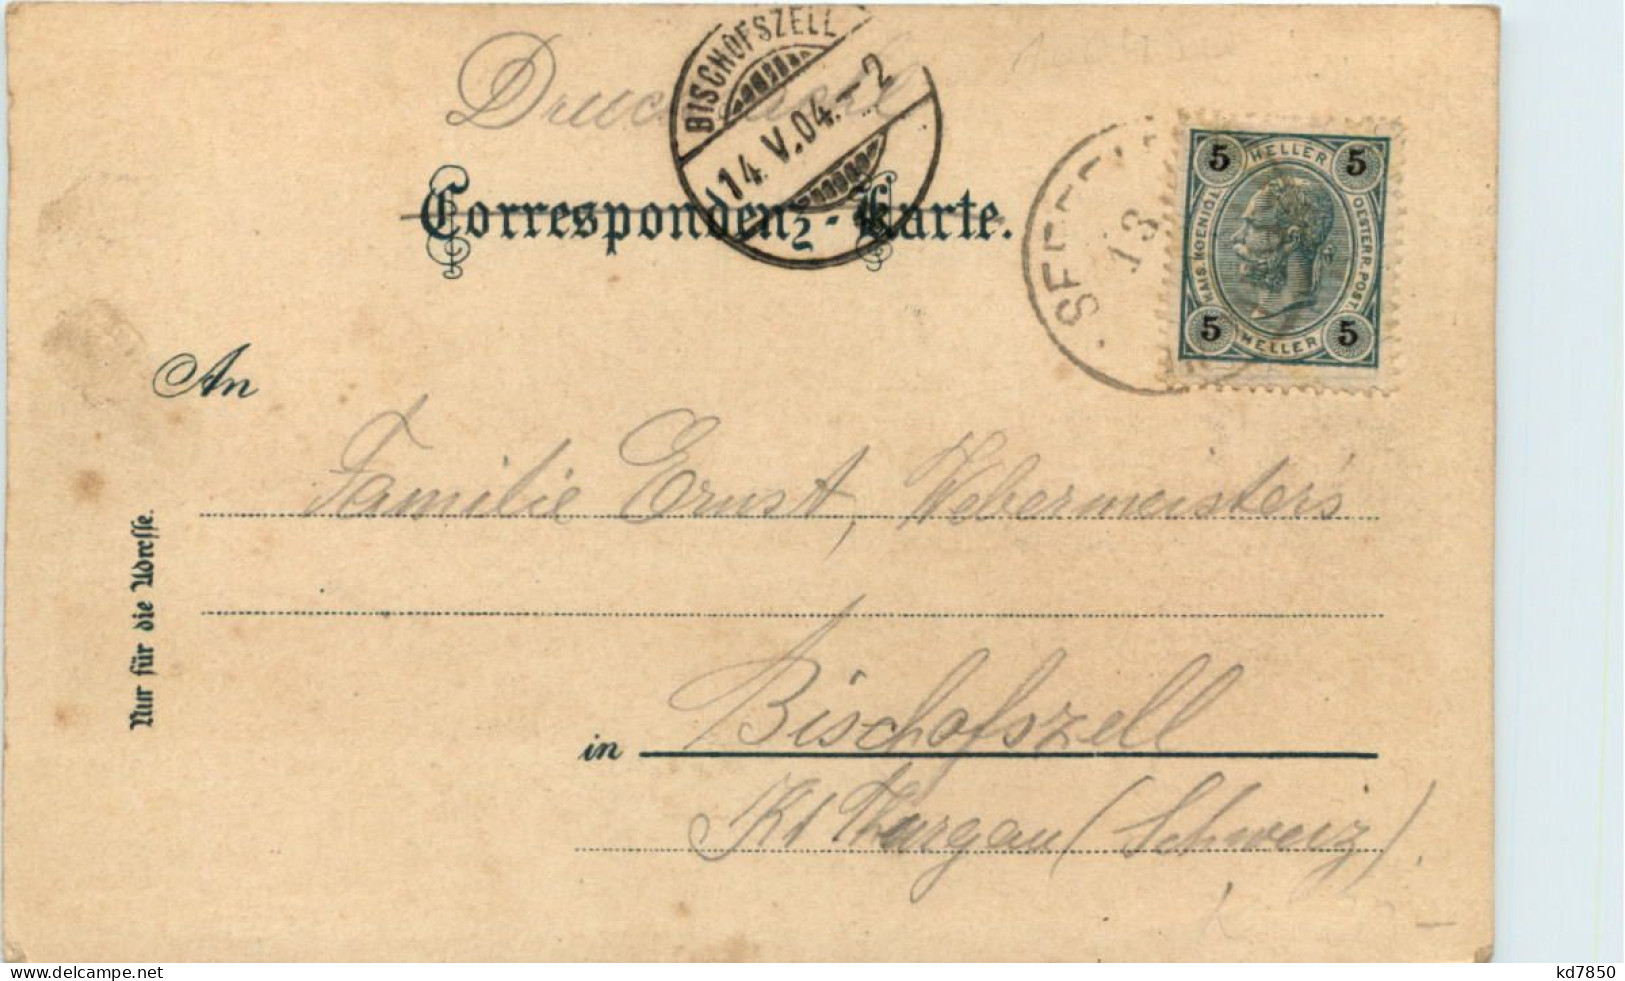 BISCHOFSZELL
14.V.04.-2
Correspondenz-Karte.
13
5 HELLER 5
KAIS. KOENIGL. OESTERR. POST.
5 HELLER 5
An
Familie Ernst, Webermeister's
Nur für die Adresse.
Bischofszell
in
Kt Thurgau (Schweiz).
www.delcampe.net
kd7850